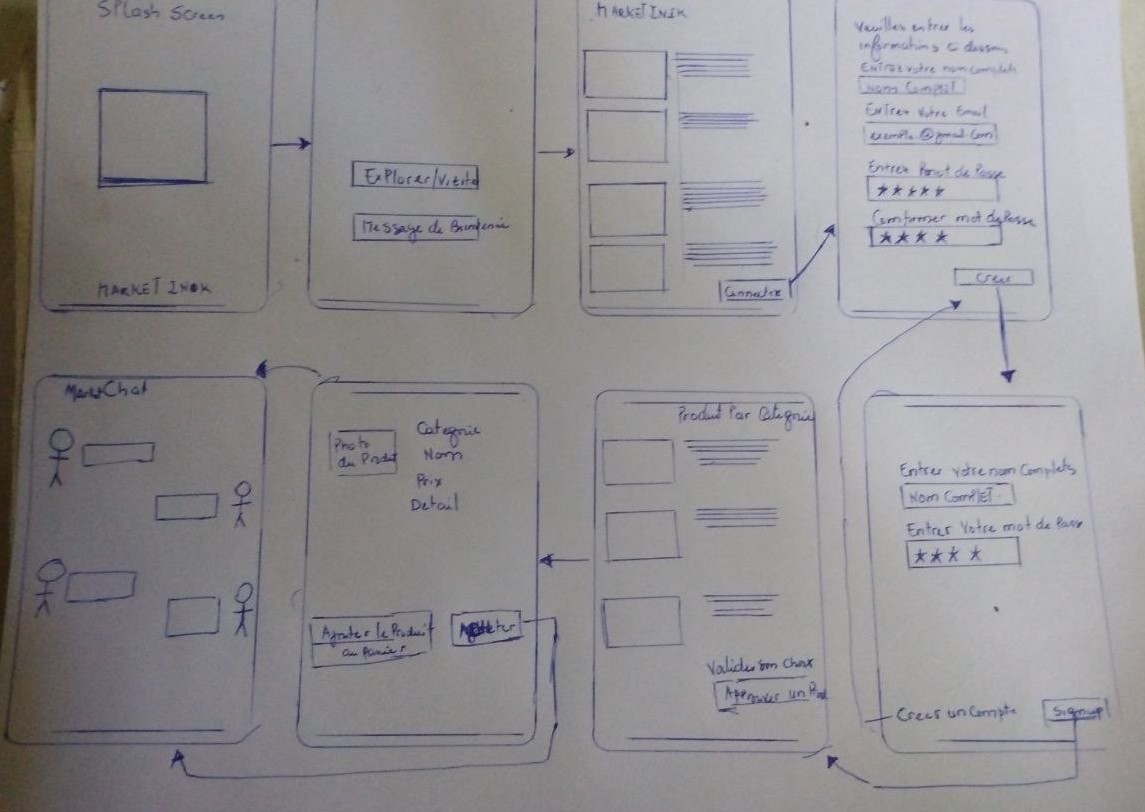 SPlash Screen
MARKET INOK
Explorer/Vizite
Message de
MARKET INIK
Connecter
Veuillez entrer les
informations
Entrez votre nom complets
Nom Complet
Entrer Votre Email
exemple@gmail.com
Entrer de Passe
*****
mot de Passe
****
Creer
MarketChat
Photo
du Produit
Categorie
Nom
Prix
Detail
Ajouter le Produit
au Panier
Produit Par Categorie
Valider son Choix
un
Entrer votre nom Complets
Nom COMPLET.
Entrer Votre mot de Passe
****
Creer un Compte
Signup